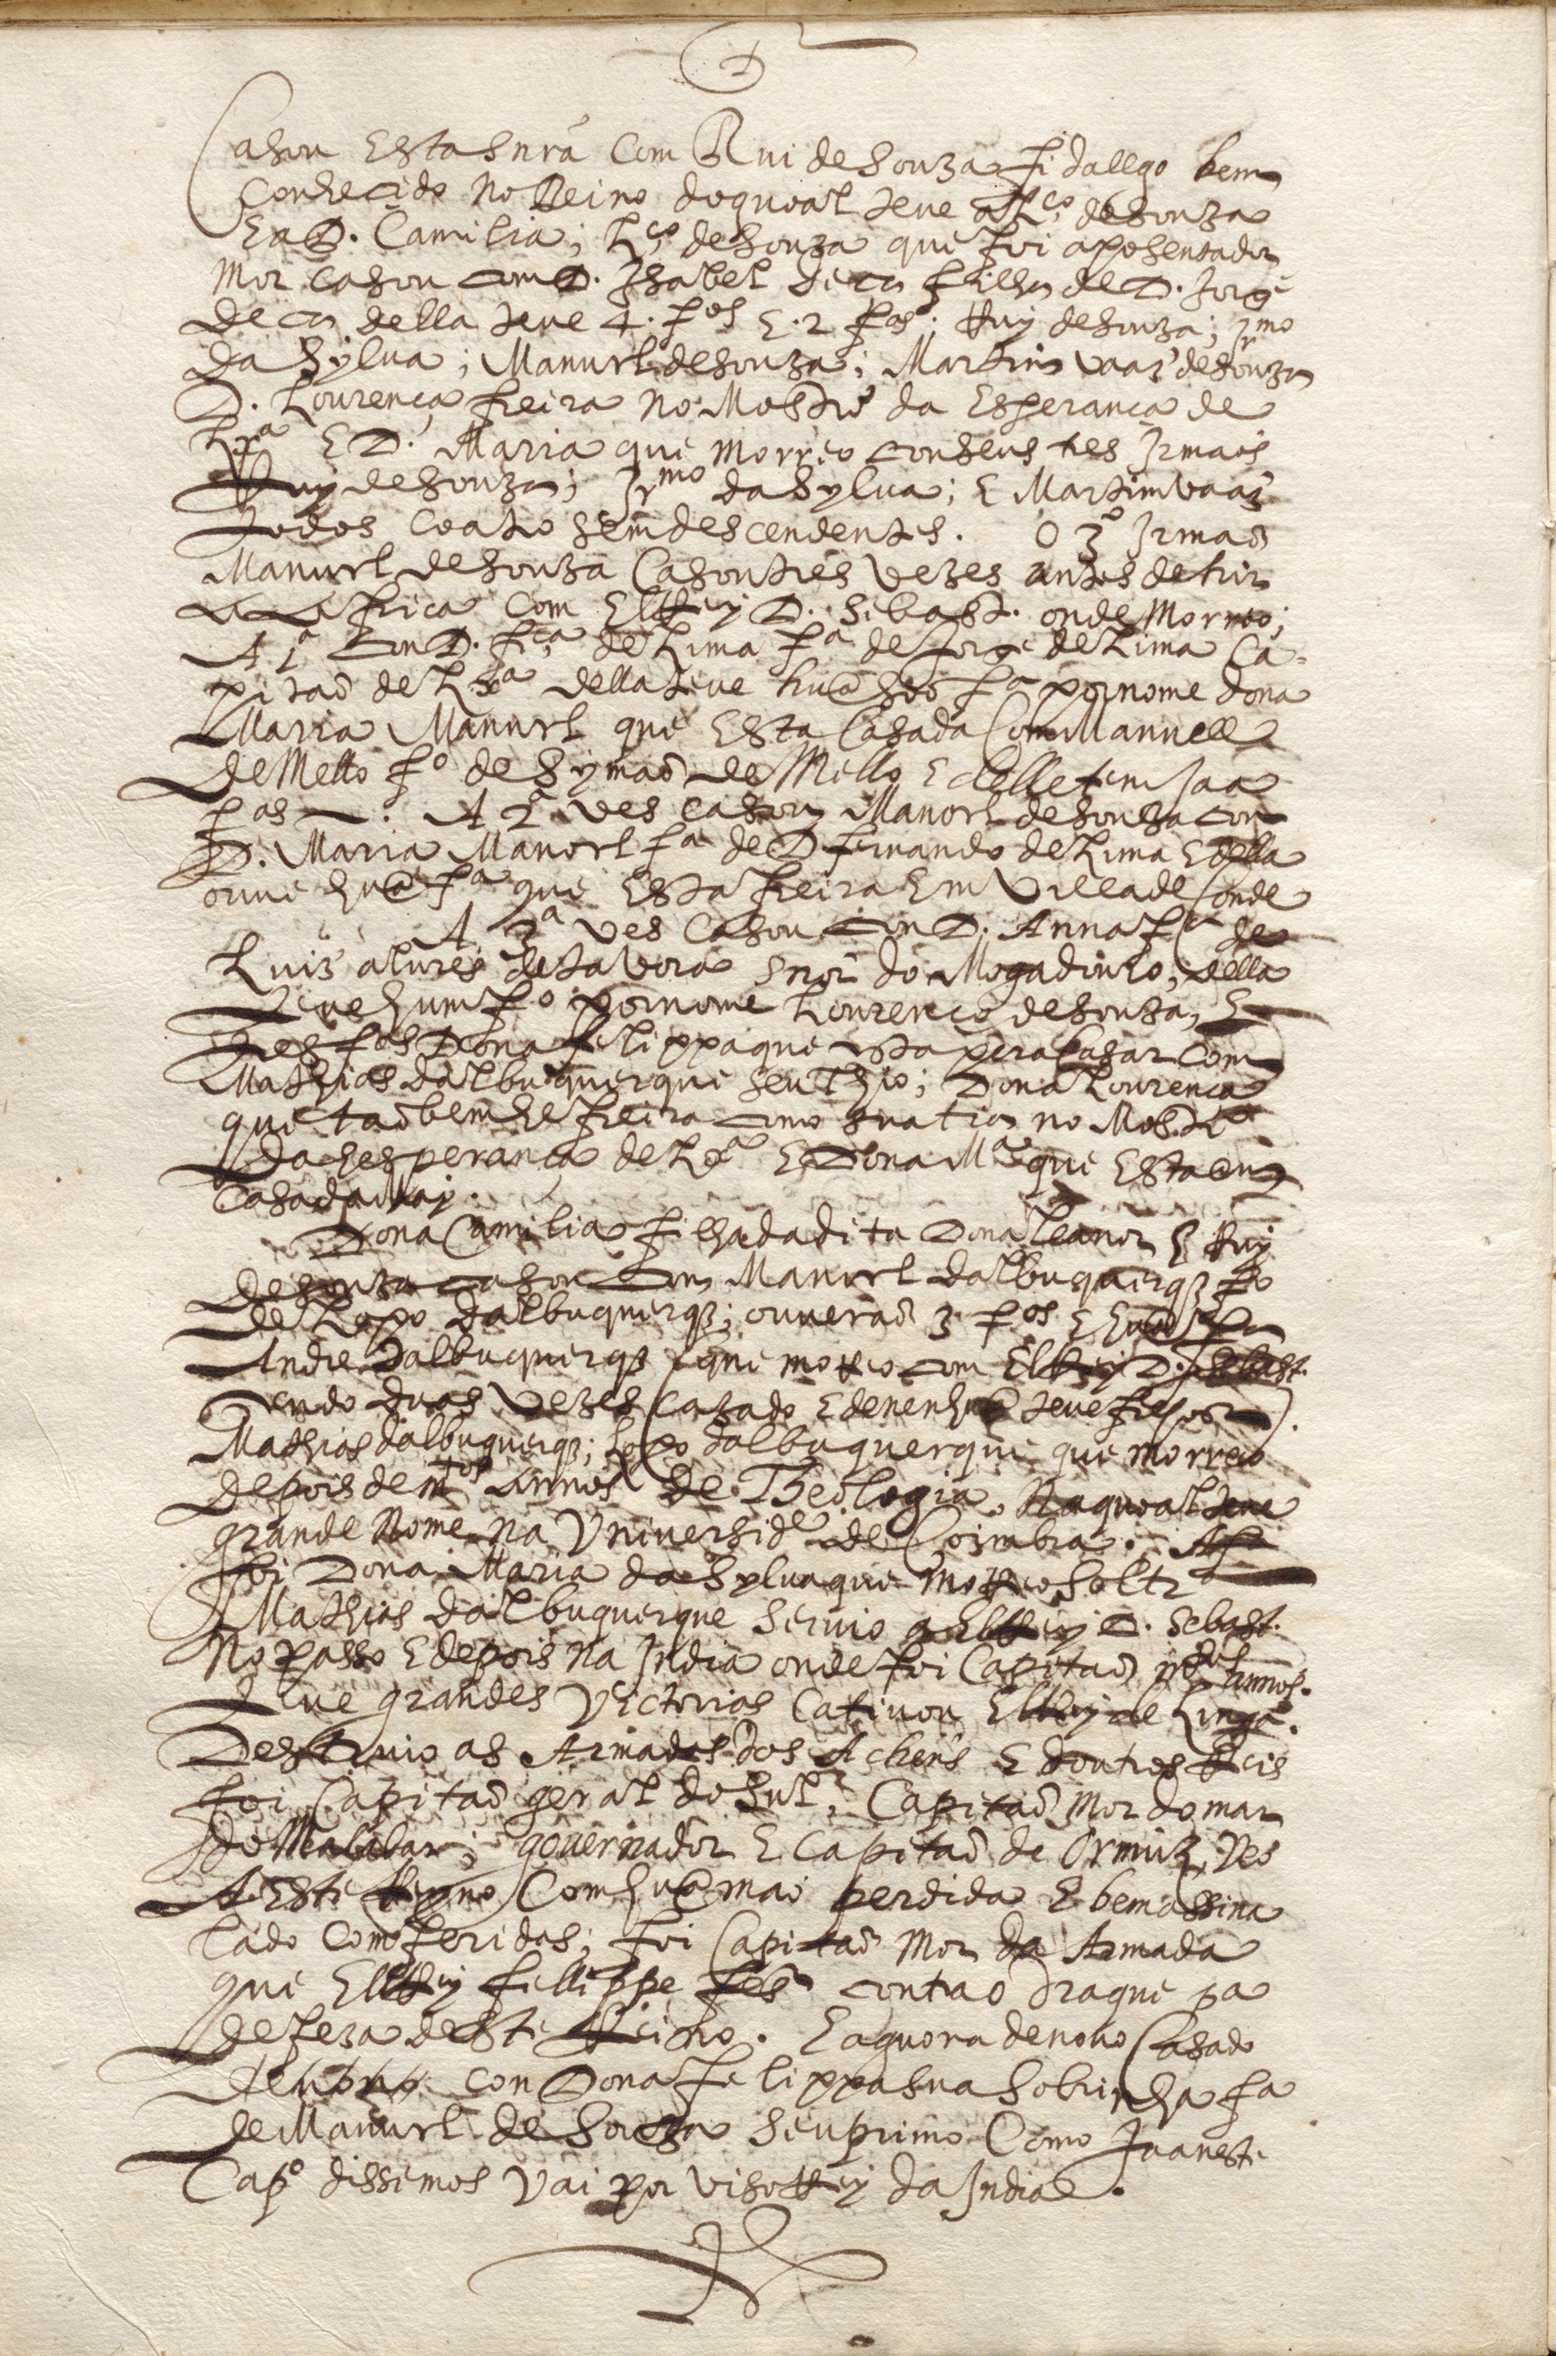 1
Casou Esta snrã Com Rui de Souza fidallgo bem
Conhecido No Reino do quoal teve a Lco de Souza
E a D. Camilia; Lço de Souza que foi aposentador
Mor casou com D. Isabel deca filha de D. Jorge
deca della teve 4. fos E. 2 fas. Ruy de Souza; Jrmo
da Sylva; Manuel de Souza; Martim vaaz de Souza
D. Lourença freira no Mostro da Esperança de
Lxa E D. Maria que morreo con seus tres Irmaõs
Ruy de Souza; Jrmo da Sylva; E Martim vaaz
todos coatro sem descendentes. O 3º Irmaõ
Manuel de Souza Casou tres vezes antes de hir
a Africa com ElRey D. Sebast. onde Morreo;
A 1ª con D. fca de Lima fª de Jorge de Lima Ca-
pitaõ de della teve huã soo fª por nome dona
Maria Manuel que Esta Casada Com Manuell
de Mello fº de Symaõ de Mello E delle tem Jaa
fas. A 2ª ves casou Manoel de Souza con
D. Maria Manoel fª de D fernando de Lima E della
ouue huã fª que Esta freira Em Villa de Conde
A 3ª ves casou con D. Anna fª de
Luis alures de tavora snor do Mogadouro; della
teve hum fº por nome Lourenço de Souza, E
tres fas Dona felippa que esta pera Casar com
Mathias dalbuquerque seu thio; Dona Lourença
que taõbem he freira como sua tia no Mostrº
da hesperança de Lxa E Dona Mª que Esta em
Casa da May.
Dona Camilia filha da dita Dona Leanor E Ruy
de Souza casou com Manuel dalbuquerq fº
de Lopo dalbuquerq; ouveraõ 3 fos E huã fª
Andre dalbuquerq que morreo com ElRey D. Sebast.
sendo duas vezes cazado E de nenhuã teve filhos.
Mathias dalbuquerq; Lopo dalbuquerque que morreo
depois de mtos annos de Theologia. Na quoal teve
grande Nome na Universide de Coimbra. A fª
foi Dona Maria da Sylva que morreo soltrª
Mathias dalbuquerque servio a ElRey D. Sebast.
No passo E depois na India onde foi Capitaõ mtos annos.
Teve grandes victorias Cativou ElRey de
Destruio as Armadas dos Achens E doutros Reis
foi Capitaõ geral do Sul, Capitaõ Mor do mar
do Malabar; governador E Capitaõ de Ormuz, Veo
A Este Reyno Com huã maõ perdida E bem assina
lado com feridas; foi Capitaõ Mor da Armada
que ElRey fellippe fes contra o Draque pa
defeza deste Reino. E aguora de novo Casado
con Dona felippa sua sobrinha fa
de Manuel de Souza seu primo Como Ja neste
Capº dissemos Vai por visoRey da India.